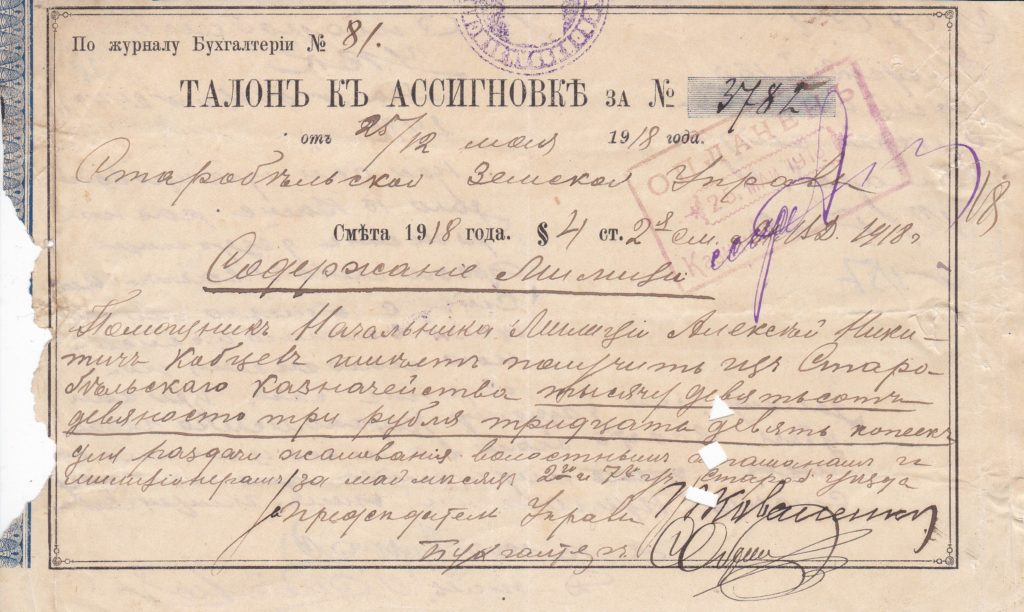 По журналу Бухгалтеріи № 81.
ТАЛОНЪ КЪ АССИГНОВКѢ ЗА № 3782
отъ 25/12 мая 1918 года.
ОПЛАЧЕНЪ
Старобѣльской Земской Управы
Смѣта 1918 года. § 4 ст. 2 см. 1918 г
Содержаніе Милиціи
Помощникъ Начальника Милиціи Алексѣй Ники-
тичъ Кобцевъ имѣетъ получить изъ Старо-
бѣльскаго казначейства тысячу девятьсотъ
девяносто три рубля тридцать девять копеекъ
для раздачи жалованія волостнымъ и
милиціонерамъ за май мѣсяцъ 2го и 7го Староб уѣзда
Предсѣдатель Управы Коваленко
Бухгалтеръ